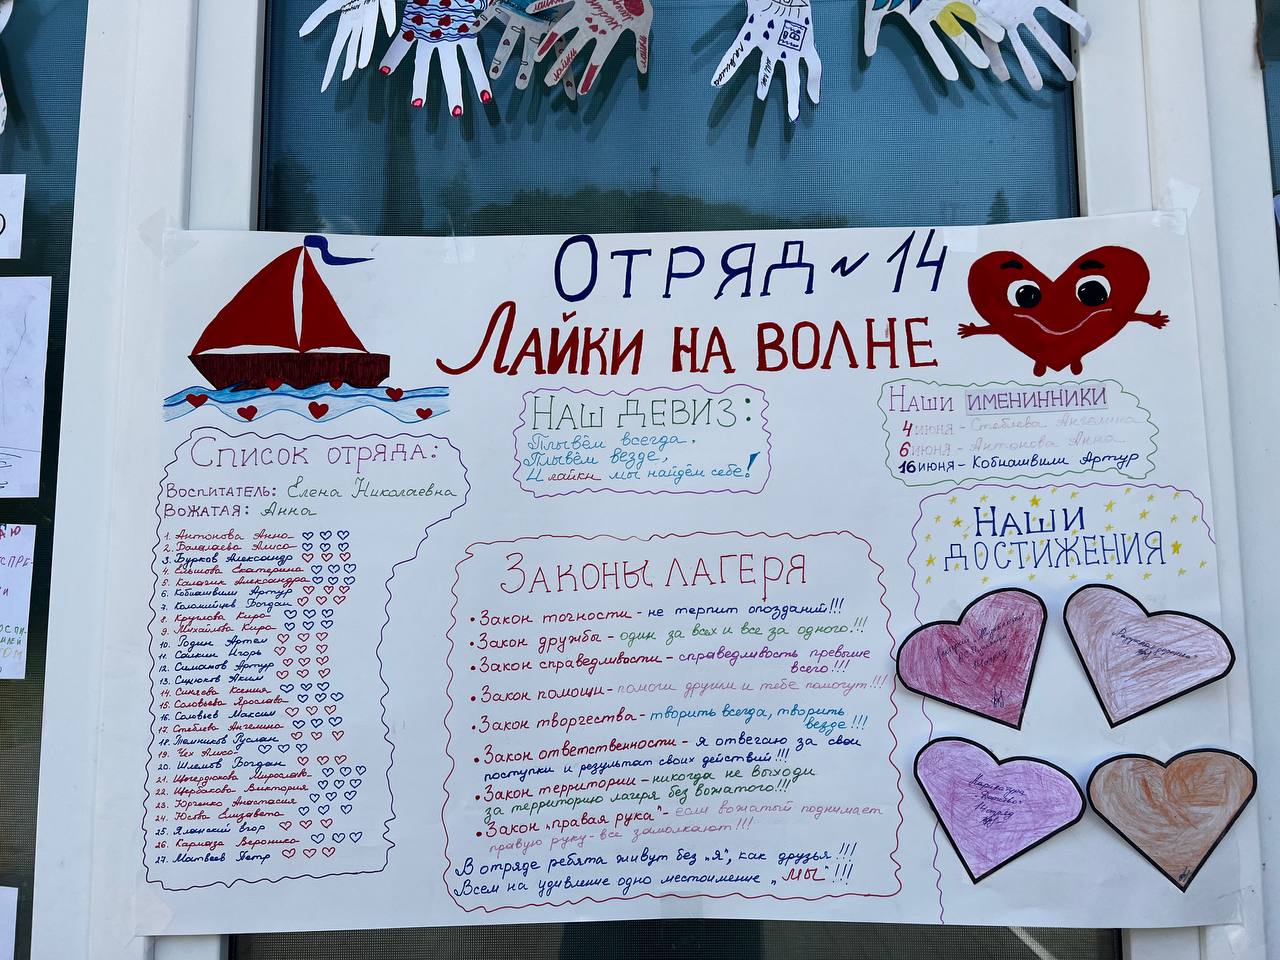 Отряд № 14
Лайки на волне
Наш девиз:
Плывём всегда,
Плывём везде,
И лайки мы найдём себе!
Наши именинники
4 июня - Стеблева Ангелина
6 июня - Антонова Анна
16 июня - Кобиашвили Артур
Список отряда:
Воспитатель: Елена Николаевна
Вожатая: Анна
1. Антонова Анна
2. Балалаева Алиса
3. Бурков Александр
4. Ельшова Екатерина
5. Калагин Александра
6. Кобиашвили Артур
7. Коломийцев Богдан
8. Круглова Кира
9. Михайлова Кира
10. Родин Артём
11. Саякин Игорь
12. Симонов Артур
13. Синюков Аким
14. Сингова Ксения
15. Соловьева Ярослава
16. Соловьев Максим
17. Стеблева Ангелина
18. Темников Руслан
19. Чех Алиса
20. Шлемов Богдан
21. Щегердюкова Мирослава
22. Щербакова Виктория
23. Юрченко Анастасия
24. Юсва Елизавета
25. Яланский Егор
26. Карназа Вероника
27. Матвеев Петр
Законы лагеря
• Закон точности - не терпит опозданий!!!
• Закон дружбы - один за всех и все за одного!!!
• Закон справедливости - справедливость превыше
всего!!!
• Закон помощи - помоги другим и тебе помогут!!!
• Закон творчества - творить всегда, творить
везде!!!
• Закон ответственности - я отвечаю за свои
поступки и результат своих действий!!!
• Закон территории - никогда не выходи
за территорию лагеря без вожатого!!!
• Закон „правая рука" - если вожатый поднимает
правую руку - все замолкают!!!
В отряде ребята живут без „я", как друзья!!!
Всем на удивление одно местоимение „мы"!!!
Наши
достижения